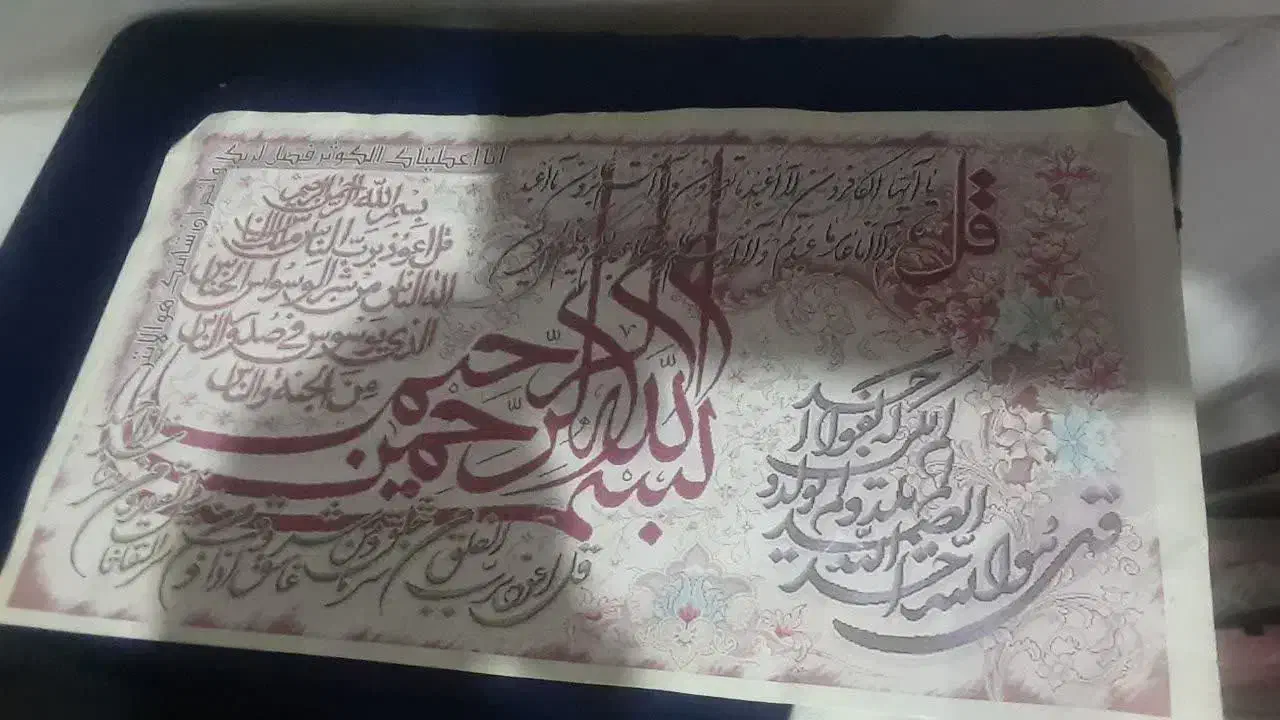 انا اعطیناک الکوثر فصل لربک
وانحر ان شانئک هو الابتر
قل
یا ایها الکافرون لا اعبد ما تعبدون ولا انتم عابدون ما اعبد
ولا انا عابد ما عبدتم ولا انتم
بسم الله الرحمن الرحیم
قل اعوذ برب الناس ملک الناس
اله الناس من شر الوسواس الخناس
الذی یوسوس فی صدور الناس
من الجنة والناس
بسم الله الرحمن الرحیم
قل هو الله احد
الله الصمد
لم یلد ولم یولد و
لم یکن له کفوا احد
قل اعوذ برب الفلق
من شر ما خلق ومن شر
غاسق اذا وقب